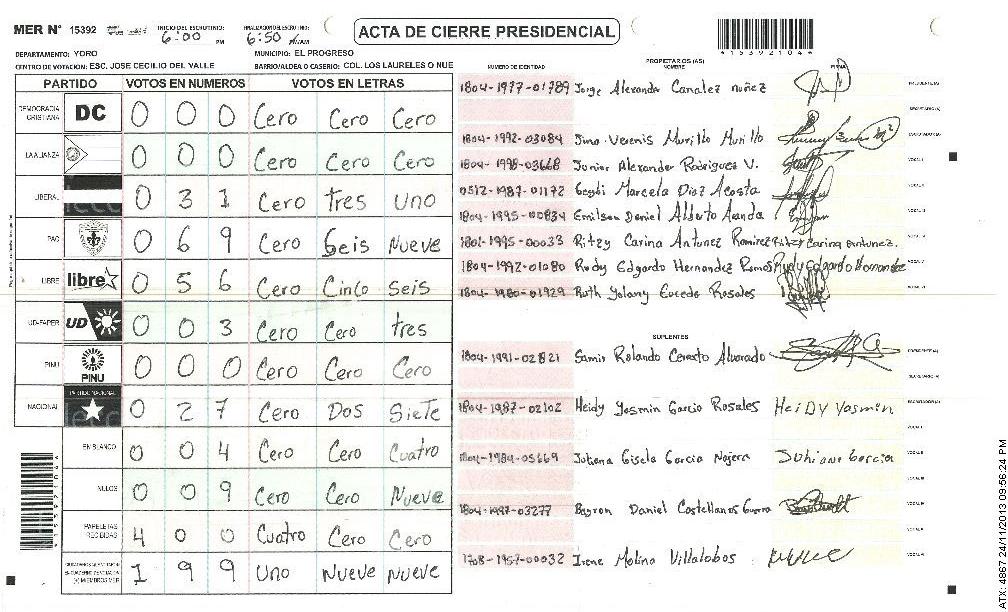 MER Nº 15392 INICIO DEL ESCRUTINIO: 6:00 PM FINALIZACION DEL ESCRUTINIO: 6:50 ACTA DE CIERRE PRESIDENCIAL
DEPARTAMENTO: YORO MUNICIPIO: EL PROGRESO
CENTRO DE VOTACION: ESC. JOSE CECILIO DEL VALLE BARRIO/ALDEA O CASERIO: COL. LOS LAURELES O NUE
*15392104*
PARTIDO VOTOS EN NUMEROS VOTOS EN LETRAS
DEMOCRACIA CRISTIANA DC 0 0 0 Cero Cero Cero
LA ALIANZA 0 0 0 Cero Cero Cero
LIBERAL 0 3 1 Cero Tres Uno
PAC 0 6 9 Cero Seis Nueve
LIBRE libre 0 5 6 Cero Cinco Seis
UD-FAPER UD 0 0 3 Cero Cero tres
PINU PINU 0 0 0 Cero Cero Cero
NACIONAL PARTIDO NACIONAL 0 2 7 Cero Dos Siete
EN BLANCO 0 0 4 Cero Cero Cuatro
NULOS 0 0 9 Cero Cero Nueve
PAPELETAS RECIBIDAS 4 0 0 Cuatro Cero Cero
(+) MIEMBROS MER 1 9 9 Uno Nueve Nueve
PROPIETARIOS (AS)
NUMERO DE IDENTIDAD NOMBRE FIRMA
1804-1977-01789 Jorge Alexander Canalez nuñez PRESIDENTE (A)
SECRETARIO (A)
1804-1992-03084 Murillo Murillo ESCRUTADOR (A)
Junior Alexander Rodriguez V. VOCAL I
0512-1987-01172 Marcela Diaz Acosta VOCAL II
1804-1995-00834 Emilson Daniel Alberto VOCAL III
Ritzy Carina Antunez Ramirez Ritzy Carina Antunez.
1804-1992-01080 Rudy Edgardo Hernandez Ramos Rudy Edgardo Hernandez
1804-1980-01929 Ruth Yolany Rosales
SUPLENTES
1804-1991-02821 Samir Rolando Alvarado PRESIDENTE (A)
SECRETARIO (A)
1804-1987-02102 Heidy Yasmin Garcia Rosales Heidy Yasmin ESCRUTADOR (A)
1804-1984-05669 Juliana Gisela Garcia Najera Juliana Garcia
Bayron Daniel Castellanos Guerra
Irene Molina Villalobos
ATX: 4867 24/11/2013 09:56:24 PM